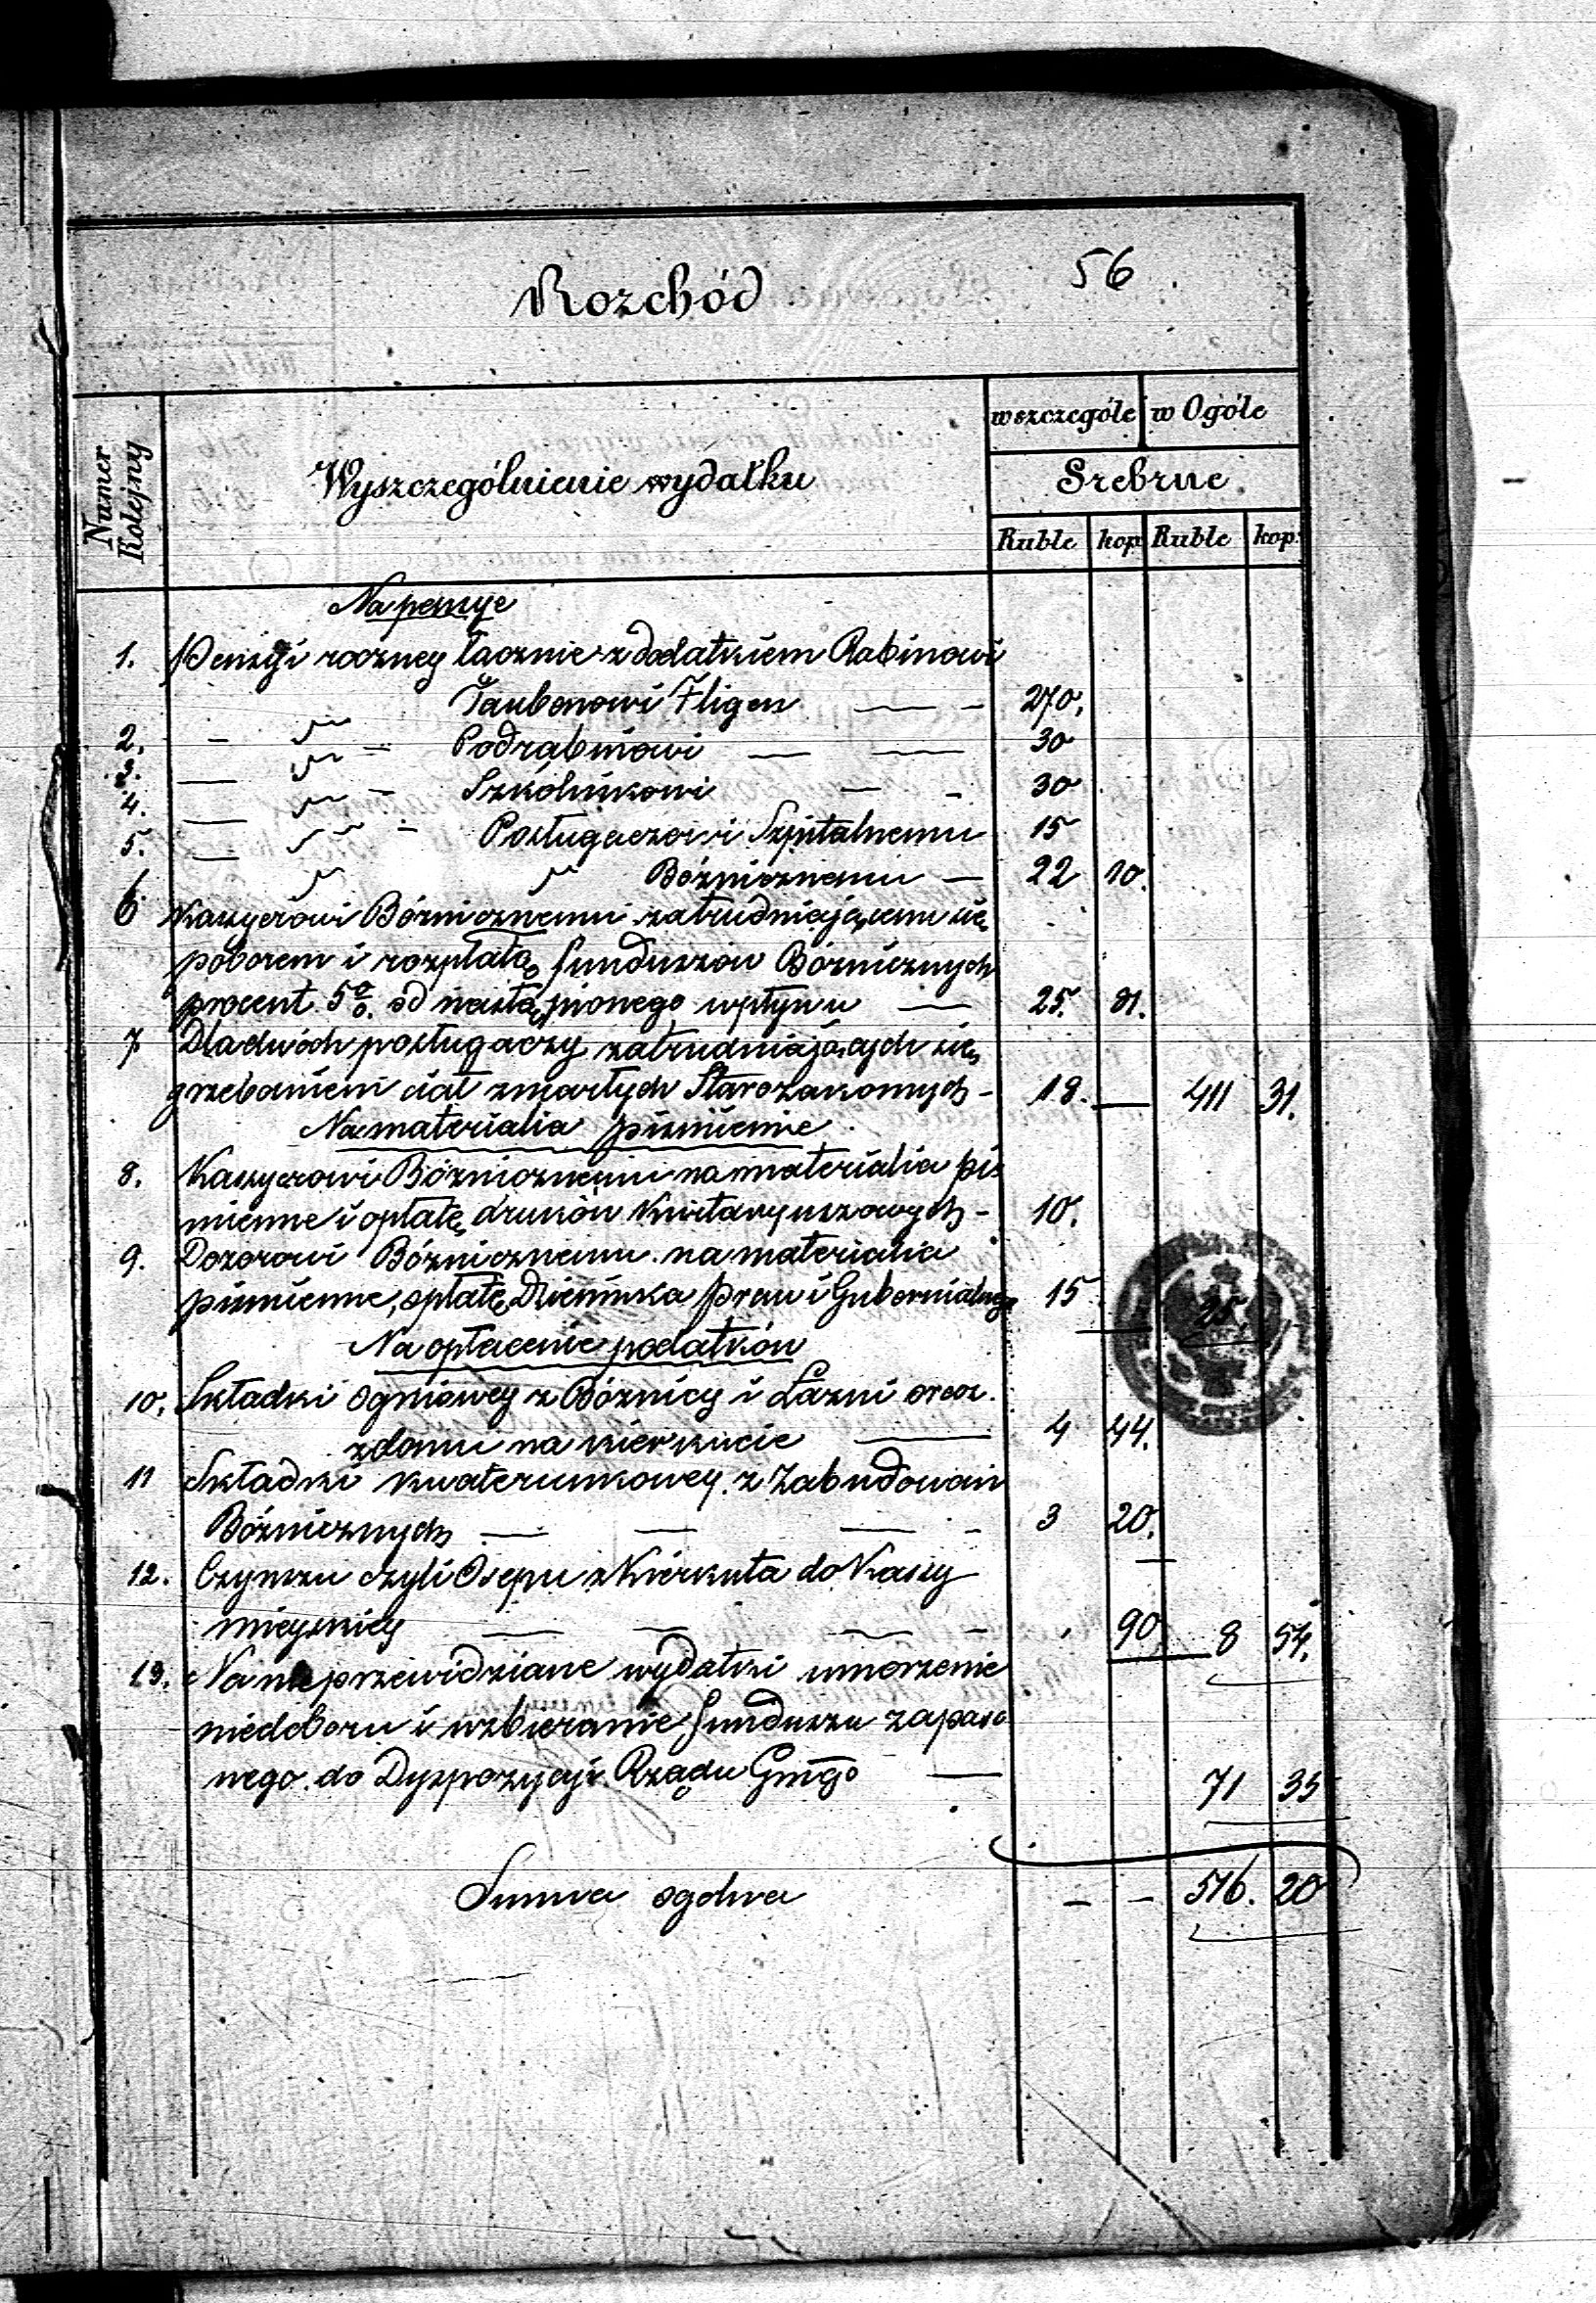 56
Rozchód
Numer Kolejny
Wyszczególnienie wydatku
w szczególe w Ogóle
Srebrne
Ruble kop Ruble kop:
Na pensye
1. Pensyi roczney łącznie z dodatkiem Rabinowi
Taubenowi Fligen — - 270.
2. - " - Podrabinowi — — 30
3. — " - Szkólnikowi — - 30
4. — " - Posługaczowi Szpitalnemu 15
5. — " " Bóżnicznemu — 22 10.
6 Kassyerowi Bóżnicznemu zatrudniającemu się
poborem i rozpłatą funduszów Bóżnicznych
procent 5%. od nastąpionego wpływu — 25. 81.
7 Dla dwóch posługaczy zatrudniających się
grzebaniem ciał zmarłych Starozakonnych - 18. — 411 31.
Na materialia piśmienne
8. Kassyerowi Bóżnicznemu na materialia piś
mienne i opłatę druków Kwitaryuszowych - 10.
9. Dozorowi Bóżnicznemu na materialia
piśmienne, opłatę Dziennika praw i Gubernialnego 15 25
Na opłacenie podatków
10. Składki Ogniowey z Bóżnicy i Łazni oraz
z domu na kierkucie — 4 44.
11 Składki kwaterunkowey z Zabudowań
Bóżnicznych — — — - 3 20.
12. Czynszu czyli Osepu z Kierkuta do Kassy
mieyskiey — — — - . 90 8 54.
13. Na nieprzewidziane wydatki umorzenie
niedoboru i wzbieranie funduszu zapaso
wego do Dyspozycyi Rządu Gub̄go — 71 35
Summa ogólna - - 516. 20